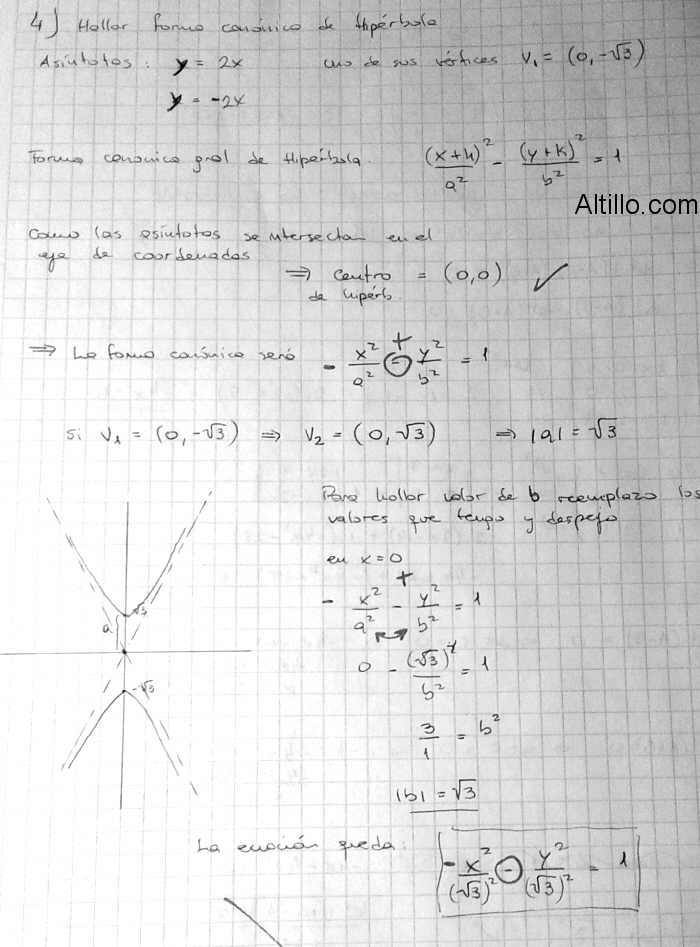 4) Hallar forma canónica de Hipérbola
Asíntotas: y = 2x uno de sus vértices V₁ = (0, -√3)
y = -2x
Forma canonica gral de Hipérbola. (x+h)²/a² - (y+k)²/b² = 1
Altillo.com
Como las asíntotas se intersectan en el
eje de coordenadas
⇒ Centro = (0,0) ✓
de hipérb.
⇒ La forma canónica será - x²/a² ⊖ + y²/b² = 1
Si V₁ = (0, -√3) ⇒ V₂ = (0, √3) ⇒ |a| = √3
Para hallar valor de b reemplazo los
valores que tengo y despejo
en x = 0
+
- x²/a² - y²/b² = 1
0 - (√3)²/b² = 1
3/1 = b²
|b| = √3
√3
a
-√3
La ecuación queda: - x²/(√3)² ⊖ y²/(√3)² = 1